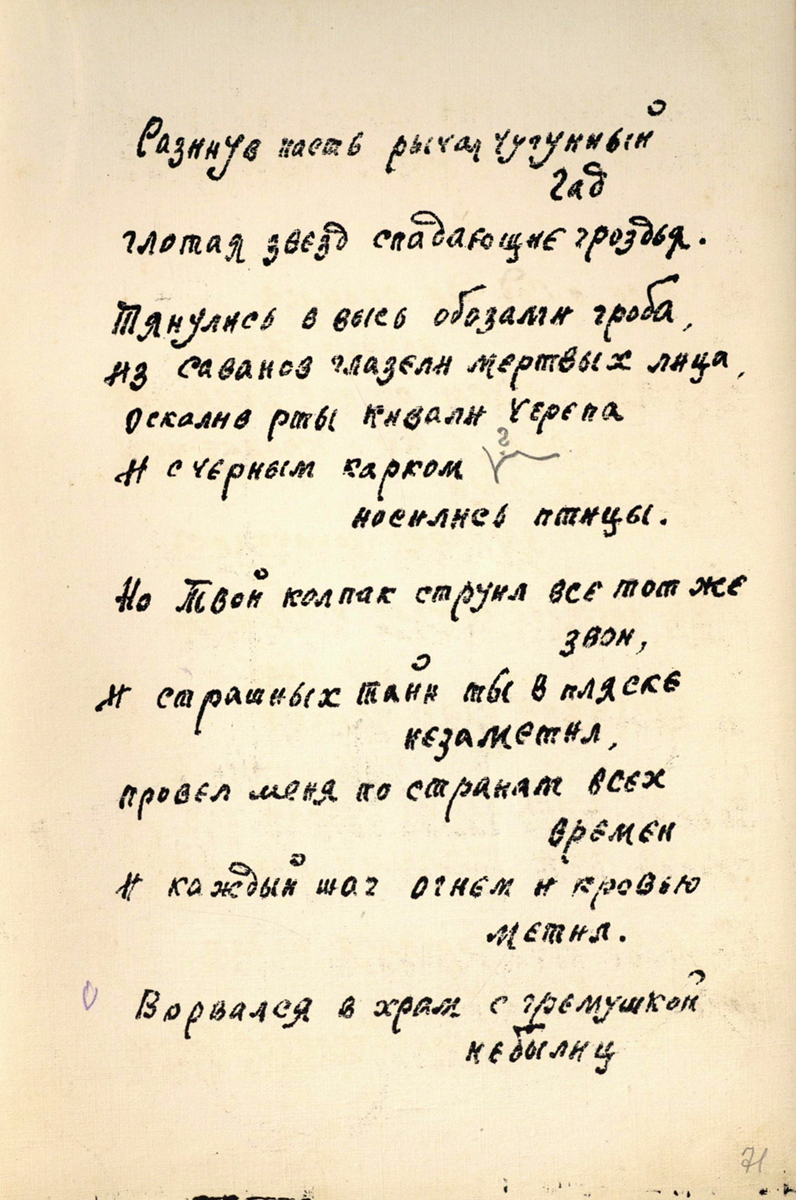 Разинув пасть рычал чугунный
гад
глотая звезд спадающие гроздья.
Тянулись в высь обозами гроба,
из саванов глазели мертвых лица,
Оскалив рты кивали черепа
И с черным карком
носились птицы.
Но Твой колпак струил все тот же
звон,
И страшных тайн ты в пляске
незаметил,
провел меня по странам всех
времен
И каждый шаг огнем и кровью
метил.
Ворвался в храм с гремушкой
небылиц
71